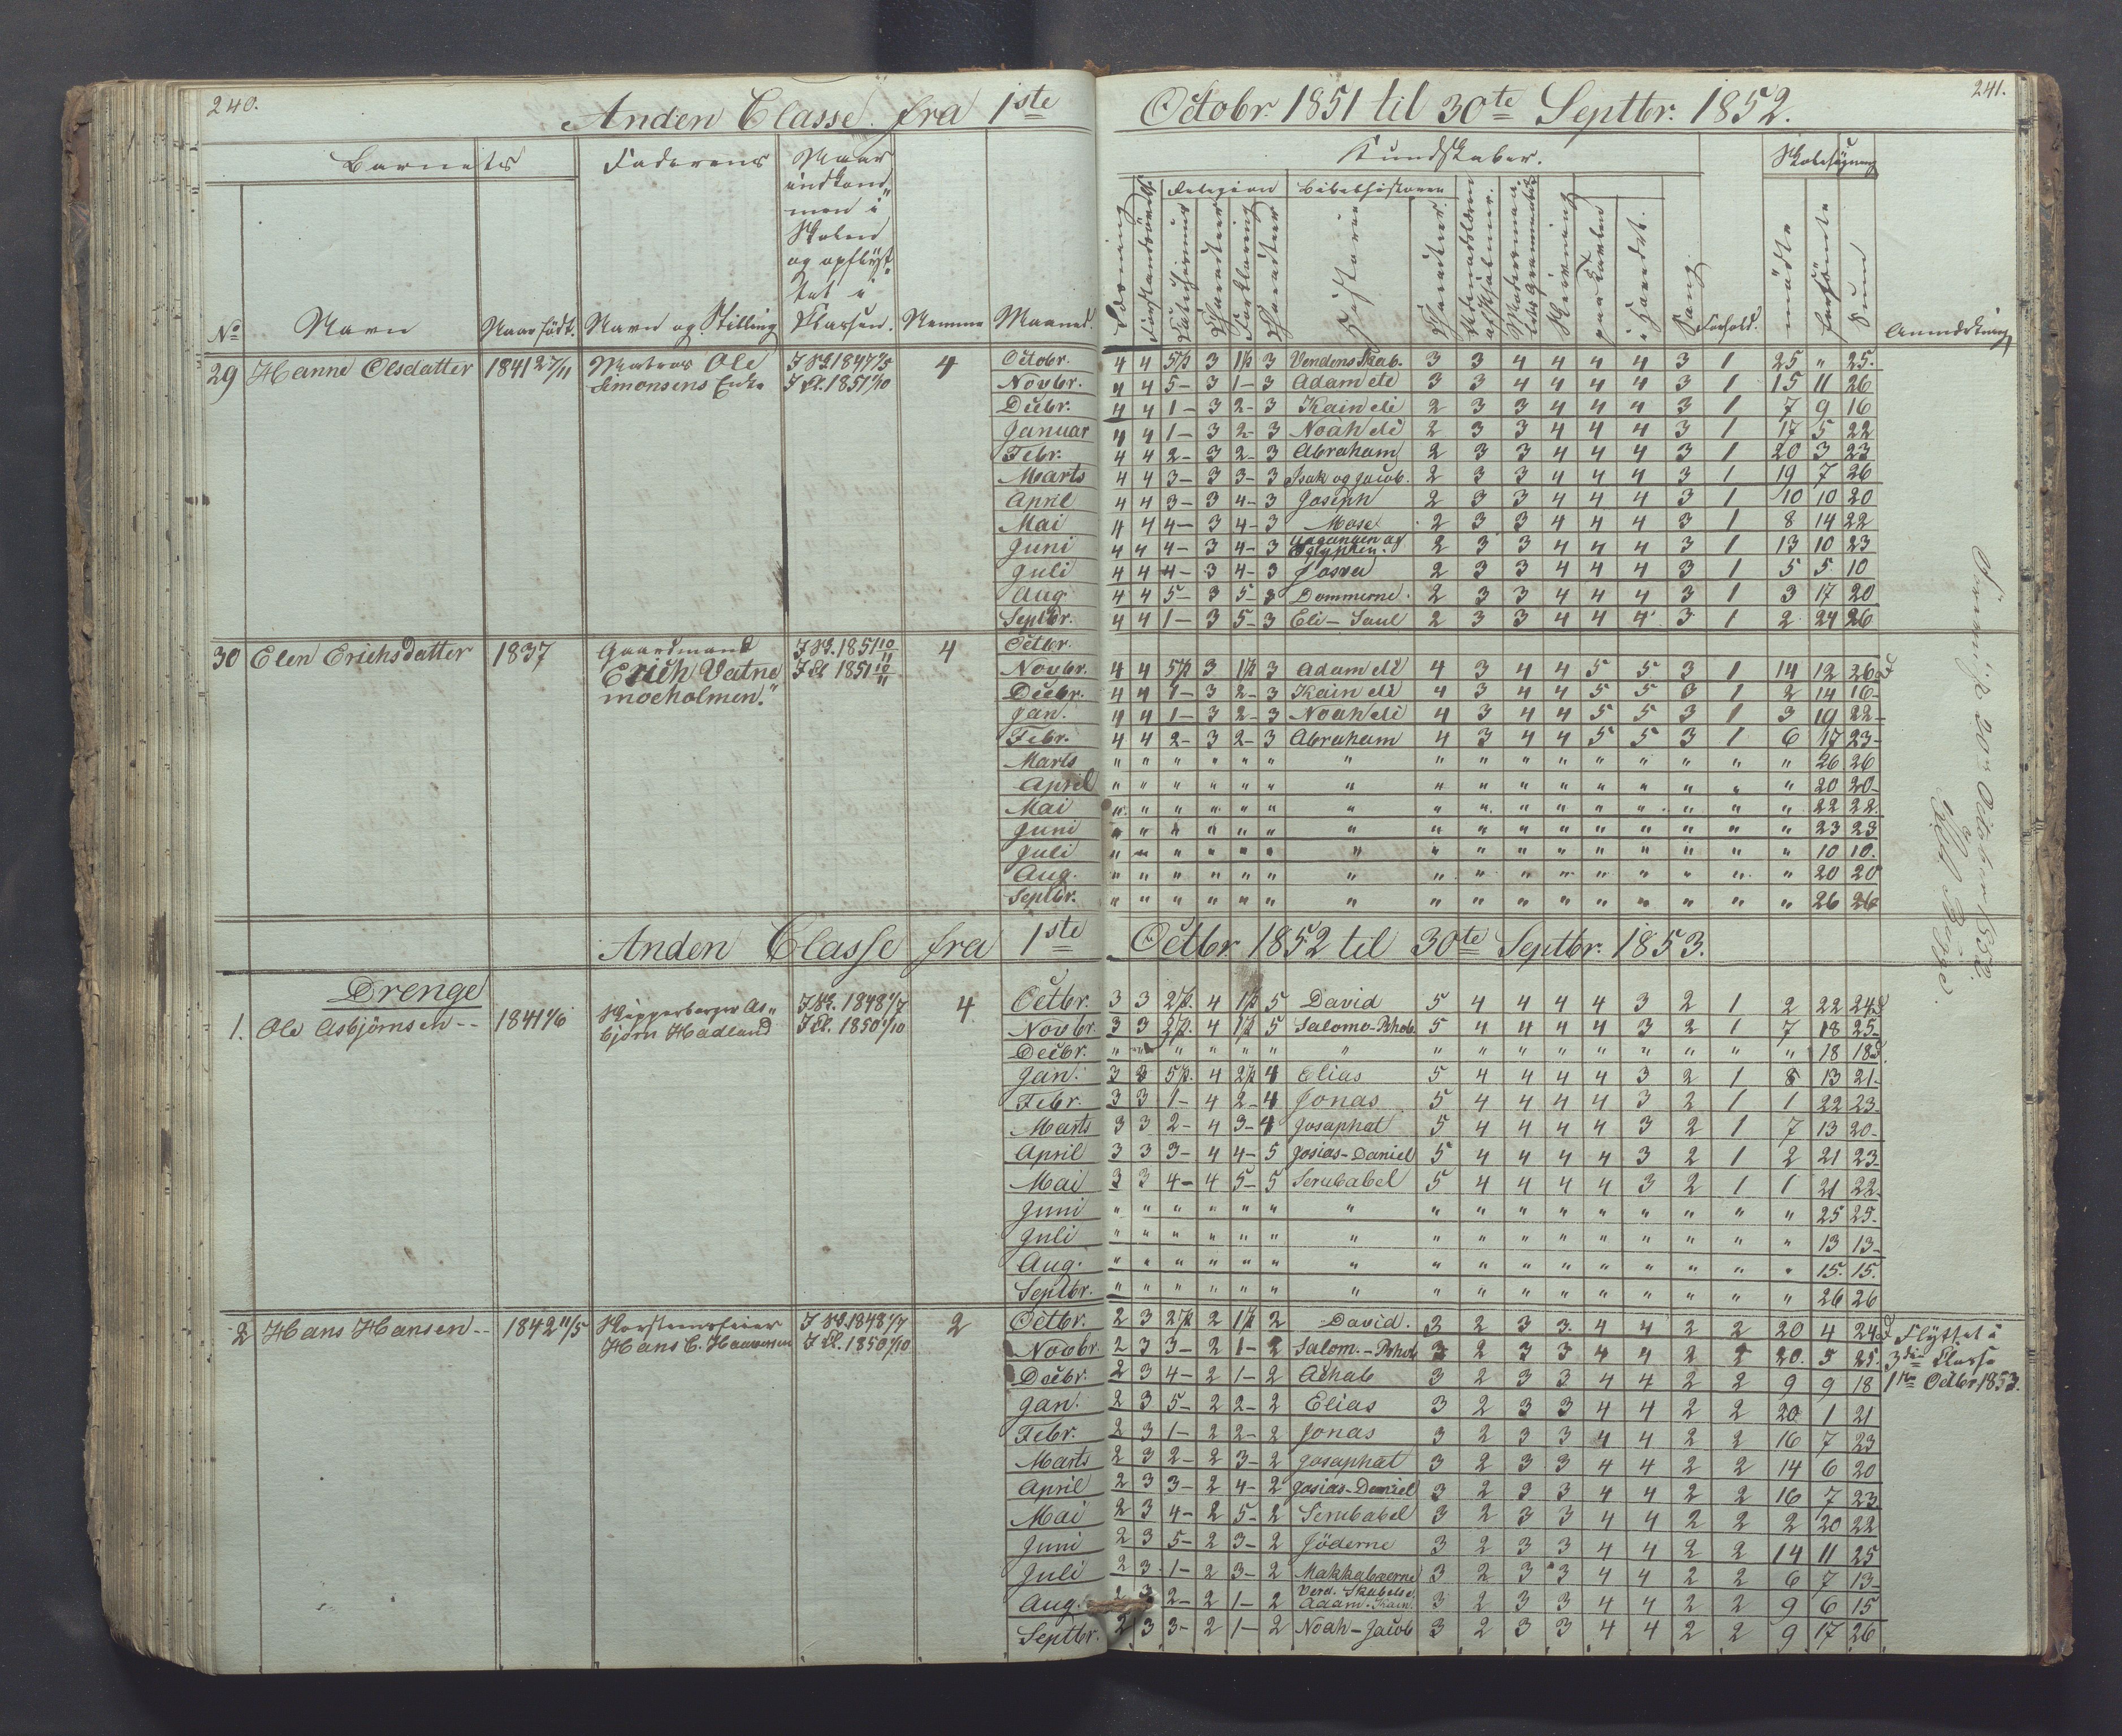 240.
Anden Classe. fra 1ste Octobr. 1851 til 30te Septbr. 1852.
241.
Barnets Faderens Naar indkommen i Skolen og opflyttet i Classen. Kundskaber. Skolesøgning
Religion Bibelhistorien
No Navn Naar født. Navn og Stilling Nemme Maaned. Historie Sang. Forhold. mødte forsømte Sum Anmærkning
29 Hanne Olsdatter 1841 27/11 Matros Ole Simonsens Enke I Sk. 1847 I Cl. 1851 1/10 4
Octobr. 4 4 5p 3 1p 3 Verdens Skab. 3 3 4 4 4 4 3 1 25 " 25.
Novbr. 4 4 5- 3 1- 3 Adam etc 3 3 4 4 4 4 3 1 15 11 26
Decbr. 4 4 1- 3 2- 3 Kain etc 2 3 3 4 4 4 3 1 7 9 16
Januar 4 4 1- 3 2- 3 Noah etc 2 3 3 4 4 4 3 1 17 5 22
Febr. 4 4 2- 3 2- 3 Abraham 2 3 3 4 4 4 3 1 20 3 23
Marts 4 4 3- 3 3- 3 Isak og Jacob. 2 3 3 4 4 4 3 1 19 7 26
April 4 4 3- 3 4- 3 Joseph 2 3 3 4 4 4 3 1 10 10 20
Mai 4 4 4- 3 4- 3 Mose 2 3 3 4 4 4 3 1 8 14 22
Juni 4 4 4- 3 4- 3 Udgangen af Egypten. 2 3 3 4 4 4 3 1 13 10 23
Juli 4 4 4- 3 4- 3 Josva 2 3 3 4 4 4 3 1 5 5 10
Aug 4 4 5- 3 5- 3 Dommerne. 2 3 3 4 4 4 3 1 3 17 20
Septbr. 4 4 1- 3 5- 3 Eli- Saul 2 3 3 4 4 4 3 1 2 24 26
30 Elen Erichsdatter 1837 Gaardmand Erich Vatnemoeholmen. I Sk. 1851 10/11 I Cl 1851 10/11 4
Octbr.
Novbr. 4 4 5p 3 1p 3 Adam etc 4 3 4 4 5 5 3 1 14 12 26
Decbr. 4 4 1- 3 2- 3 Kain etc 4 3 4 4 5 5 3 1 2 14 16-
Jan. 4 4 1- 3 2- 3 Noah etc 4 3 4 4 5 5 3 1 3 19 22-
Febr. 4 4 2- 3 2- 3 Abraham 4 3 4 4 5 5 3 1 6 17 23-
Marts " " " " " " " " " " " " " " " " 26 26
April " " " " " " " " " " " " " " " " 20 20-
Mai " " " " " " " " " " " " " " " " 22 22.
Juni " " " " " " " " " " " " " " " " 23 23
Juli " " " " " " " " " " " " " " " " 10 10.
Aug. " " " " " " " " " " " " " " " " 20 20
Septbr. " " " " " " " " " " " " " " " " 26 26
Anden Classe fra 1ste Octbr 1852 til 30te Septbr. 1853.
Drenge
1. Ole Asbjörnsen -- 1841 1/6 Asbjørn Hadland I Sk. 1848 1/7 I Cl. 1850 1/10 4.
Octbr. 3 3 2p. 4 1p 5 David 5 4 4 4 4 3 2 1 2 22 24
Novbr. 3 3 2p. 4 1p 5 Salomo-Rhob. 5 4 4 4 4 3 2 1 7 18 25-
Decbr. " " " " " " " " " " " " " " " " 18 18
Jan. 3 3 5p. 4 2p 4 Elias 5 4 4 4 4 3 2 1 8 13 21-
Febr. 3 3 1- 4 2- 4 Jonas 5 4 4 4 4 3 2 1 1 22 23-
Marts 3 3 2- 4 3- 4 Josaphat 5 4 4 4 4 3 2 1 7 13 20-
April 3 3 3- 4 4- 5 Josias-Daniel 5 4 4 4 4 3 2 1 2 21 23-
Mai 3 3 4- 4 5- 5 Serubabel 5 4 4 4 4 3 2 1 1 21 22-
Juni " " " " " " " " " " " " " " " " 25 25.
Juli " " " " " " " " " " " " " " " " 13 13-
Aug. " " " " " " " " " " " " " " " " 15. 15.
Septbr. " " " " " " " " " " " " " " " " 26 26
2 Hans Hansen -- 1842 11/5 Hans C. I Sk. 1848 1/7 I Cl. 1850 1/10 2
Octbr. 2 3 2p 2 1p 2 David. 3 2 3 3. 4 4 2 2 20 4 24 Flyttet i
Novbr. 2 3 3- 2 1- 2 Salom.-Rhob 3 2 3 3 4 4 2 2 20. 5 25. 3die Classe
Decbr. 2 3 4- 2 1- 2 Achab 3 2 3 3 4 4 2 2 9 9 18 1ste Octbr 1853.
Jan. 2 3 5- 2 2- 2 Elias 3 2 3 3 4 4 2 2 20 1 21
Febr. 2 3 1- 2 2- 2 Jonas 3 2 3 3 4 4 2 2 16 7 23
Marts 2 3 2- 2 3- 2 Josaphat 3 2 3 3 4 4 2 2 14 6 20
April 2 3 3- 2 4- 2 Josias-Daniel 3 2 3 3 4 4 2 2 16 7 23
Mai 2 3 4- 2 5- 2 Serubabel 3 2 3 3 4 4 2 2 2 20 22
Juni 2 3 5- 2 3- 2 Jöderne 3 2 3 3 4 4 2 2 14 11 25
Juli 2 3 1- 2 3- 2 Makkabæerne 3 2 3 3 4 4 2 2 6 7 13-
Aug. 2 3 2- 2 1- 2 Verd. Skabelse Adam-Kain. 3 2 3 3 4 4 2 2 9 6 15
Septbr. 2 3 3- 2 1- 2 Noah-Jacob 3 2 3 3 4 4 2 2 9 17 26